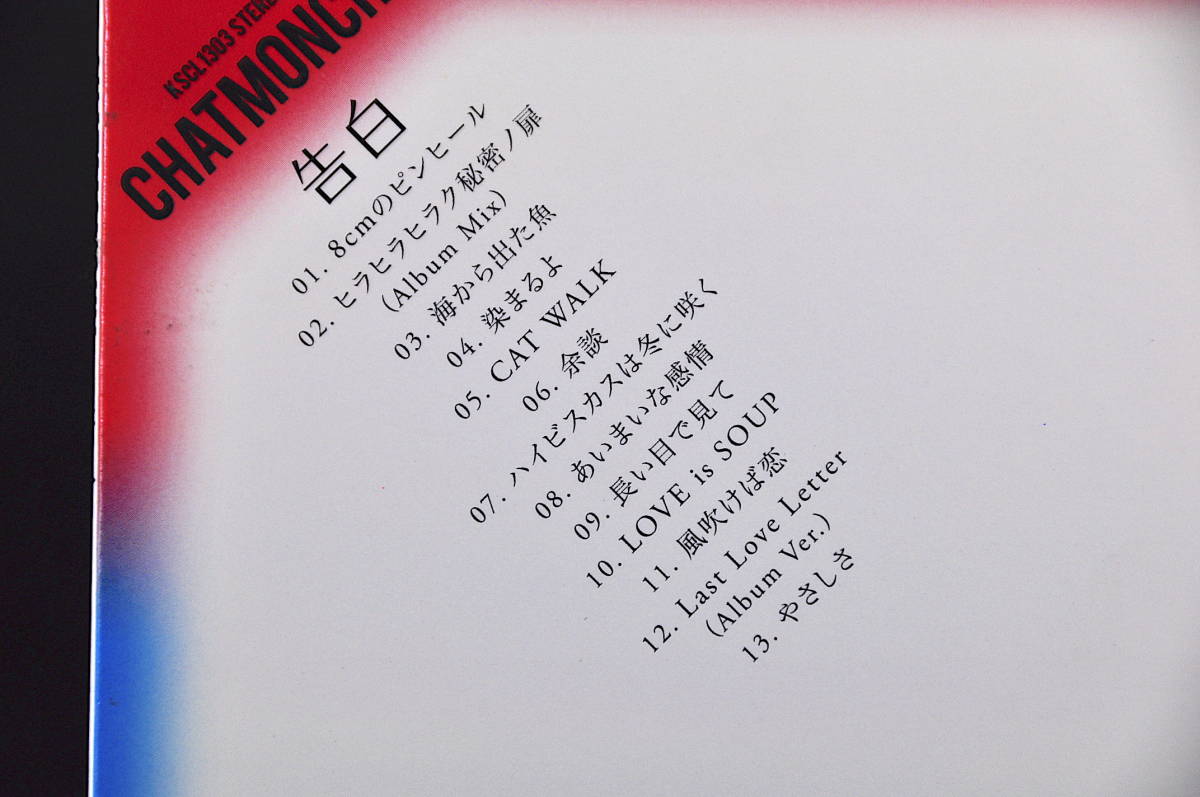 KSCL1303 STERE
CHATMONCH
告白
01. 8cmのピンヒール
02. ヒラヒラヒラク秘密ノ扉
(Album Mix)
03. 海から出た魚
04. 染まるよ
05. CAT WALK
06. 余談
07. ハイビスカスは冬に咲く
08. あいまいな感情
09. 長い目で見て
10. LOVE is SOUP
11. 風吹けば恋
12. Last Love Letter
(Album Ver.)
13. やさしさ